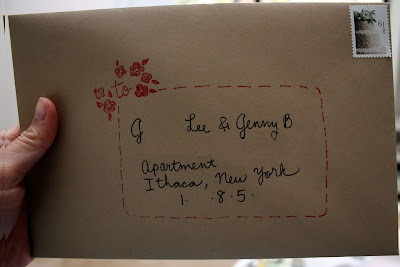 to
G Lee & Genny B
Apartment
Ithaca, New York
1 . 8 . 5 .
61